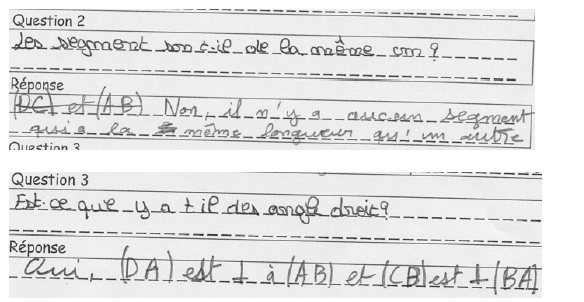 Question 2
Les segment son t-il de la même cm ?
Réponse
(DC) et (AB) Non, il n'y a aucun segment
qui a la même longueur qu'un autre
Question 3
Question 3
Est-ce que y a t il des angle droit ?
Réponse
Oui, (DA) est ⊥ à (AB) et (CB) est ⊥ (BA)